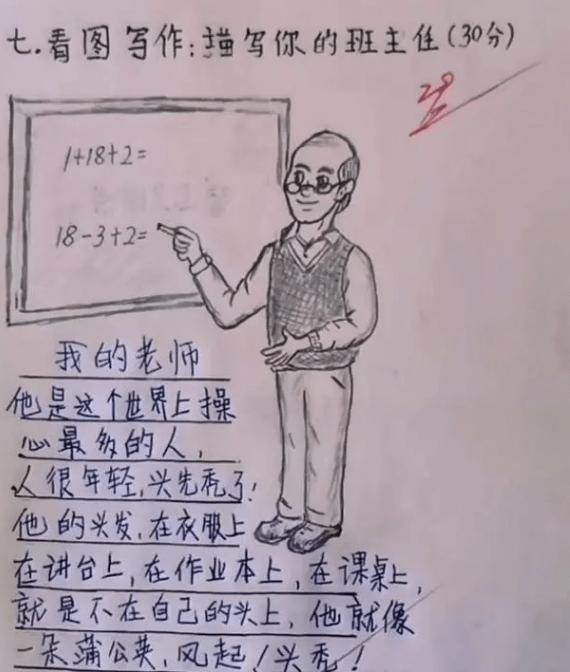 七.看图写作:描写你的班主任(30分)
28
1+18+2=
18-3+2=
我的老师
他是这个世界上操
心最多的人,
人很年轻,头先秃了!
他的头发,在衣服上
在讲台上,在作业本上,在课桌上,
就是不在自己的头上,他就像
一朵蒲公英,风起!头秃!